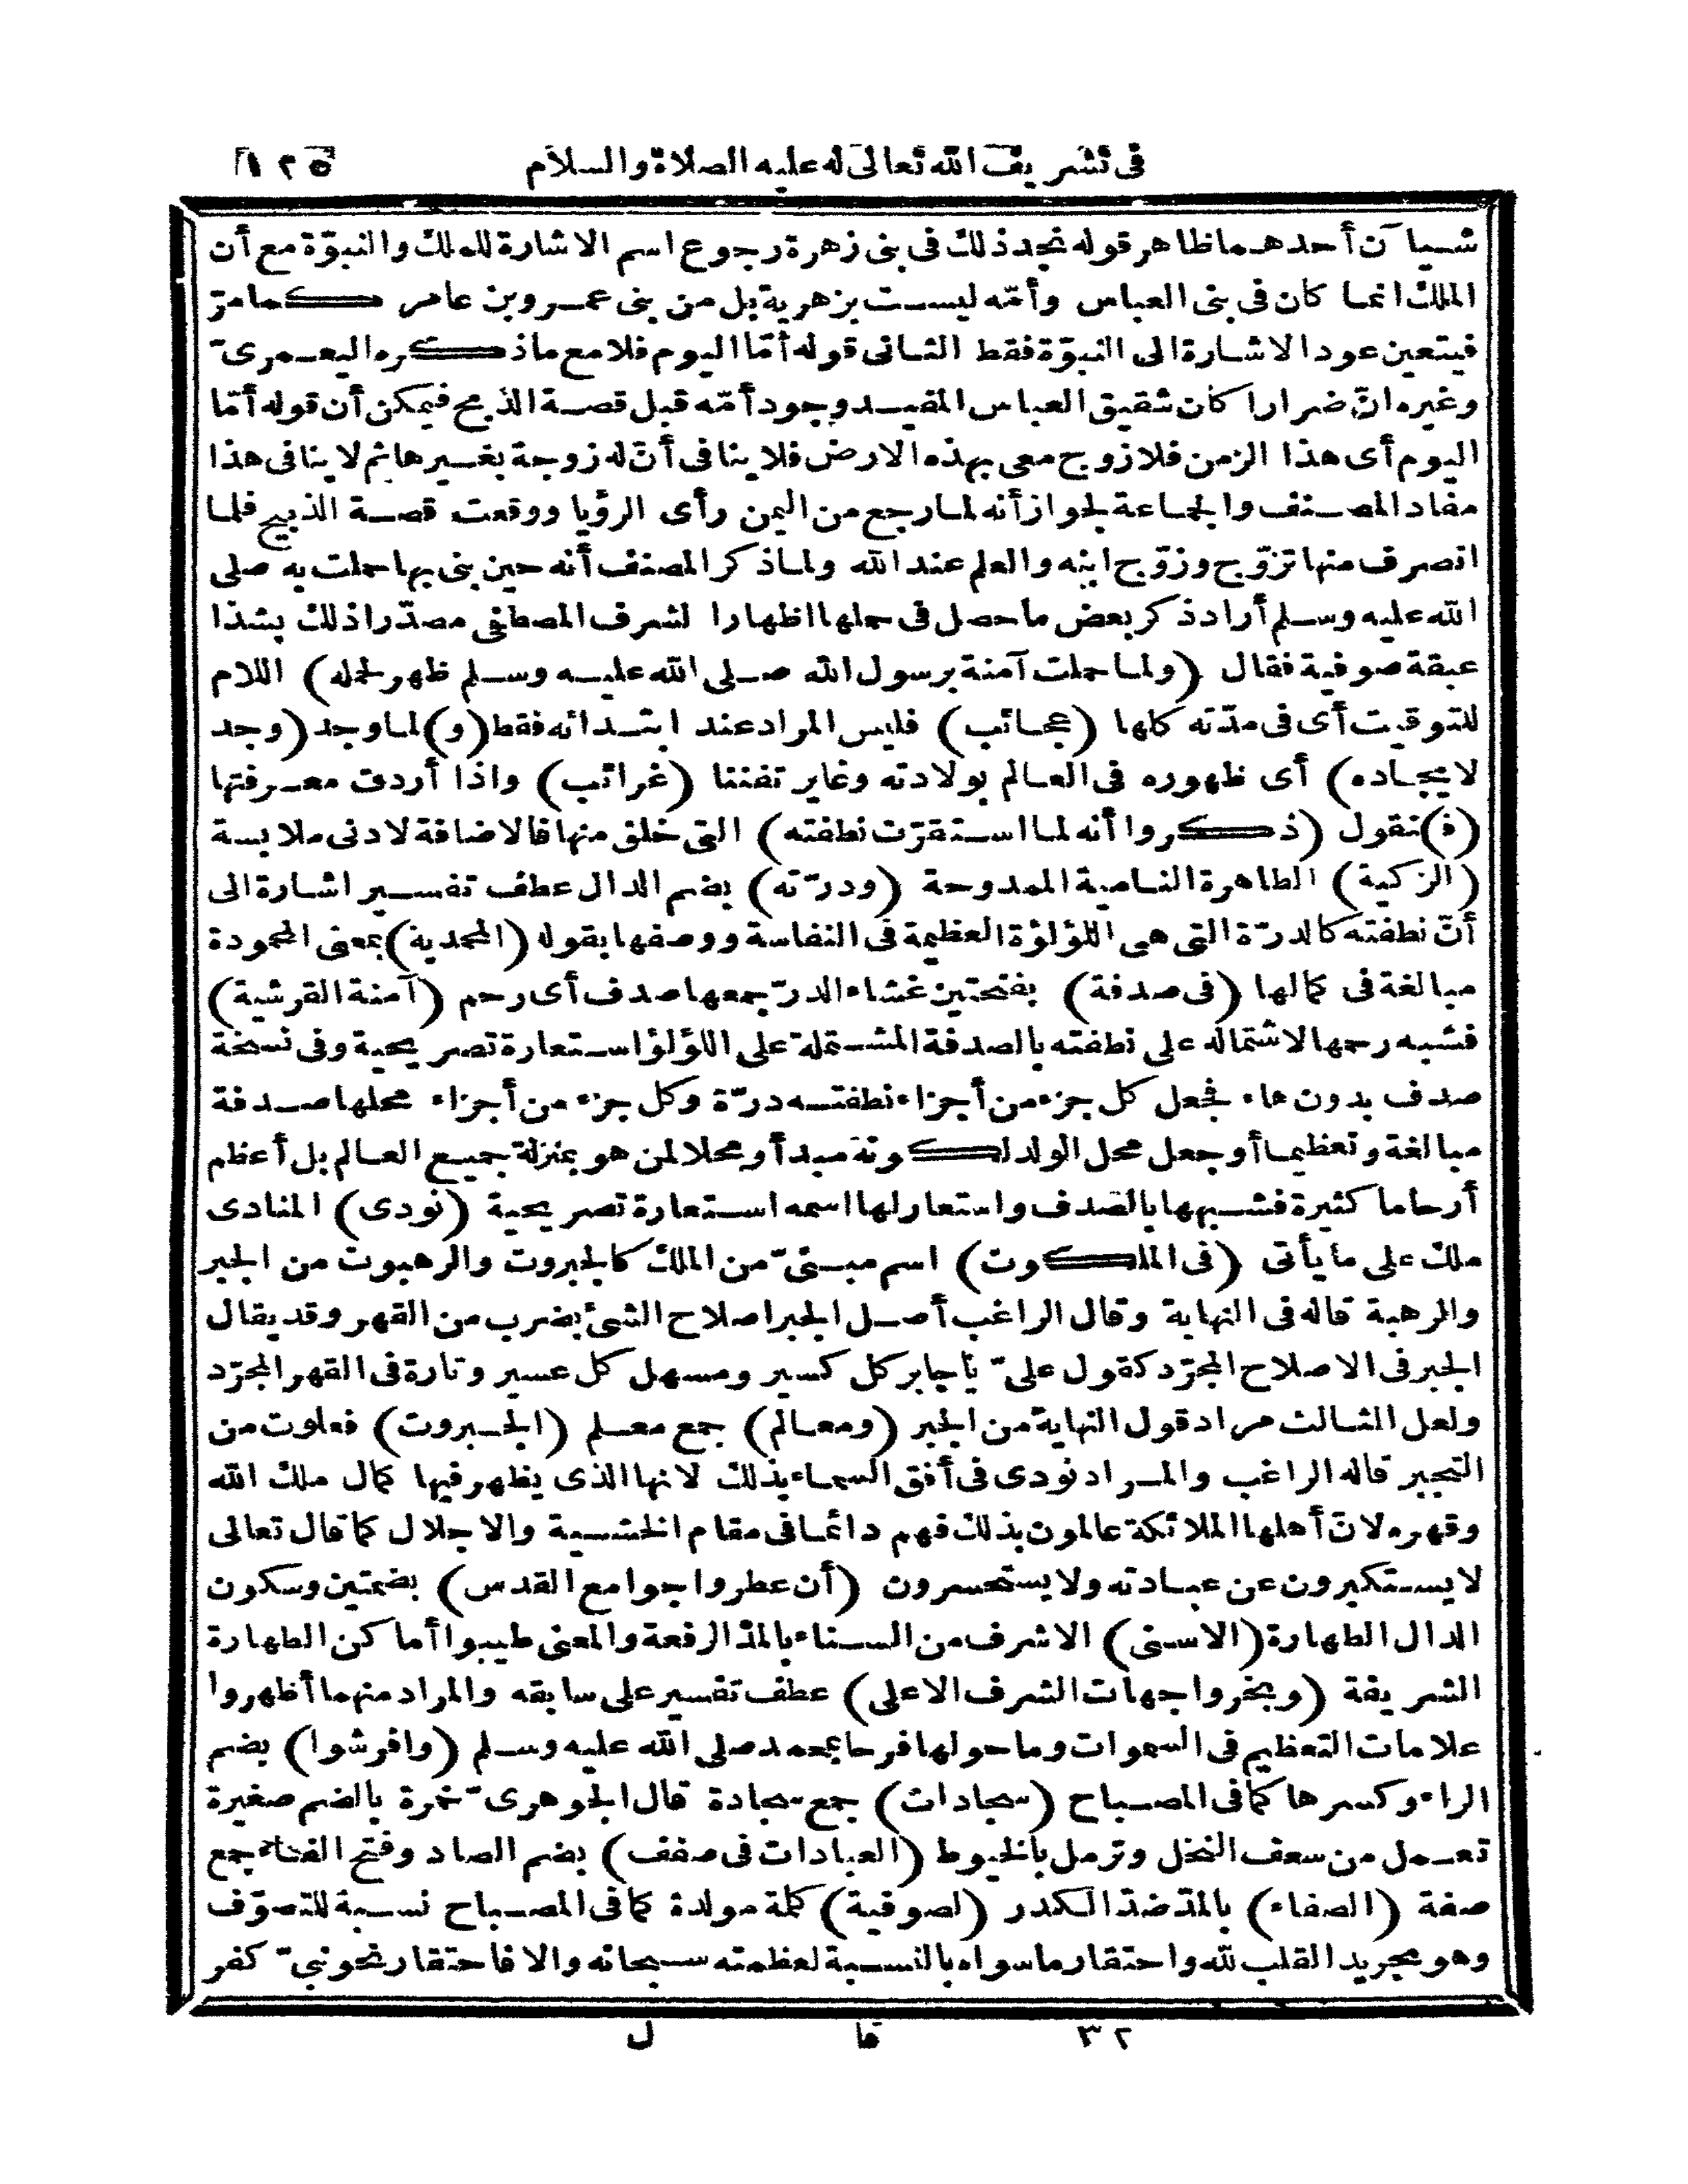 في تشريف الله تعالى له عليه الصلاة والسلام ١٢٥
شيا ن أحدهما ظاهر قوله نجد ذلك في بني زهرة رجوع اسم الاشارة للملك والنبوّة مع أن
الملك انما كان في بني العباس وأمّه ليست بزهرية بل من بني عمرو بن عامر كما مرّ
فيتعين عود الاشارة الى النبوّة فقط الثاني قوله أمّا اليوم فلا مع ما ذكره اليعمريّ
وغيره انّ ضرارا كان شقيق العباس المفيد وجود أمّه قبل قصة الذبح فيمكن أن قوله أمّا
اليوم أي هذا الزمن فلا زوج معي بهذه الارض فلا ينافي أنّ له زوجة بغيرها ثم لا ينافي هذا
مفاد المصنف والجماعة لجواز أنه لما رجع من اليمن رأى الرؤيا ووقعت قصة الذبيح فلما
انصرف منها تزوّج وزوّج ابنه والعلم عند الله ولما ذكر المصنف أنه حين بنى بها حملت به صلى
الله عليه وسلم أراد ذكر بعض ما حصل في حملها اظهارا لشرف المصطفى مصدّرا ذلك بشذا
عبقة صوفية فقال (ولما حملت آمنة برسول الله صلى الله عليه وسلم ظهر لحمله) اللام
للتوقيت أي في مدّته كلها (عجائب) فليس المراد عند ابتدائه فقط (و) لما وجد (وجد
لايجاده) أي ظهوره في العالم بولادته وغاير تفننا (غرائب) واذا أردت معرفتها
(ف) نقول (ذكروا أنه لما استقرّت نطفته) التي خلق منها فالاضافة لادنى ملابسة
(الزكية) الطاهرة النامية الممدوحة (ودرّته) بضم الدال عطف تفسير اشارة الى
أنّ نطفته كالدرّة التي هي اللؤلؤة العظيمة في النفاسة ووصفها بقوله (المحمدية) بمعنى المحمودة
مبالغة في كمالها (في صدفة) بفتحتين غشاء الدرّ جمعها صدف أي رحم (آمنة القرشية)
فشبه رحمها لاشتماله على نطفته بالصدفة المشتملة على اللؤلؤ استعارة تصريحية وفي نسخة
صدف بدون هاء فجعل كل جزء من أجزاء نطفته درّة وكل جزء من أجزاء محلها صدفة
مبالغة وتعظيما أو جعل محل الولد لكونه مبدأ ومحلا لمن هو بمنزلة جميع العالم بل أعظم
أرحاما كثيرة فشبهها بالصدف واستعار لها اسمه استعارة تصريحية (نودي) المنادي
ملك على ما يأتي (في الملكوت) اسم مبنيّ من الملك كالجبروت والرهبوت من الجبر
والرهبة قاله في النهاية وقال الراغب أصل الجبر اصلاح الشئ بضرب من القهر وقد يقال
الجبر في الاصلاح المجرّد كقول عليّ يا جابر كل كسير ومسهل كل عسير وتارة في القهر المجرّد
ولعل الثالث مراد قول النهاية من الجبر (ومعالم) جمع معلم (الجبروت) فعلوت من
التجبر قاله الراغب والمراد نودي في أفق السماء بذلك لانها الذي يظهر فيها كمال ملك الله
وقهره لانّ أهلها الملائكة عالمون بذلك فهم دائما في مقام الخشية والاجلال كما قال تعالى
لا يستكبرون عن عبادته ولا يستحسرون (أن عطروا جوامع القدس) بضمتين وسكون
الدال الطهارة (الاسنى) الاشرف من السناء بالمدّ الرفعة والمعنى طيبوا أماكن الطهارة
الشريفة (وبخروا جهات الشرف الاعلى) عطف تفسير على سابقه والمراد منهما أظهروا
علامات التعظيم في السموات وما حولها فرحا بمحمد صلى الله عليه وسلم (وافرشوا) بضم
الراء وكسرها كما في المصباح (سجادات) جمع سجادة قال الجوهريّ خمرة بالضم صغيرة
تعمل من سعف النخل وترمل بالخيوط (العبادات في صفف) بضم الصاد وفتح الفاء جمع
صفة (الصفاء) بالمدّ ضدّ الكدر (لصوفية) كلمة مولدة كما في المصباح نسبة للتصوّف
وهو تجريد القلب لله واحتقار ما سواه بالنسبة لعظمته سبحانه والا فاحتقار نحو نبيّ كفر
٣٢ قا ل